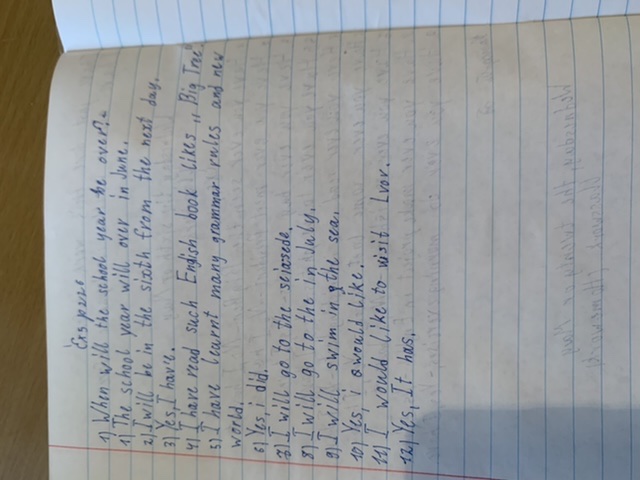 Ex3. p 226
1) When will the school year be over? -
1) The school year will over in June.
2) I will be in the sixth from the next day.
3) Yes, I have.
4) I have read such English book likes ,, Big Tree"
5) I have learnt many grammar rules and new
world.
6) Yes, i did.
7) I will go to the seiasede.
8) I will go to the in July.
9) I will swim in the sea.
10) Yes, i would like.
11) I would like to visit Lvov.
12) Yes, It has.